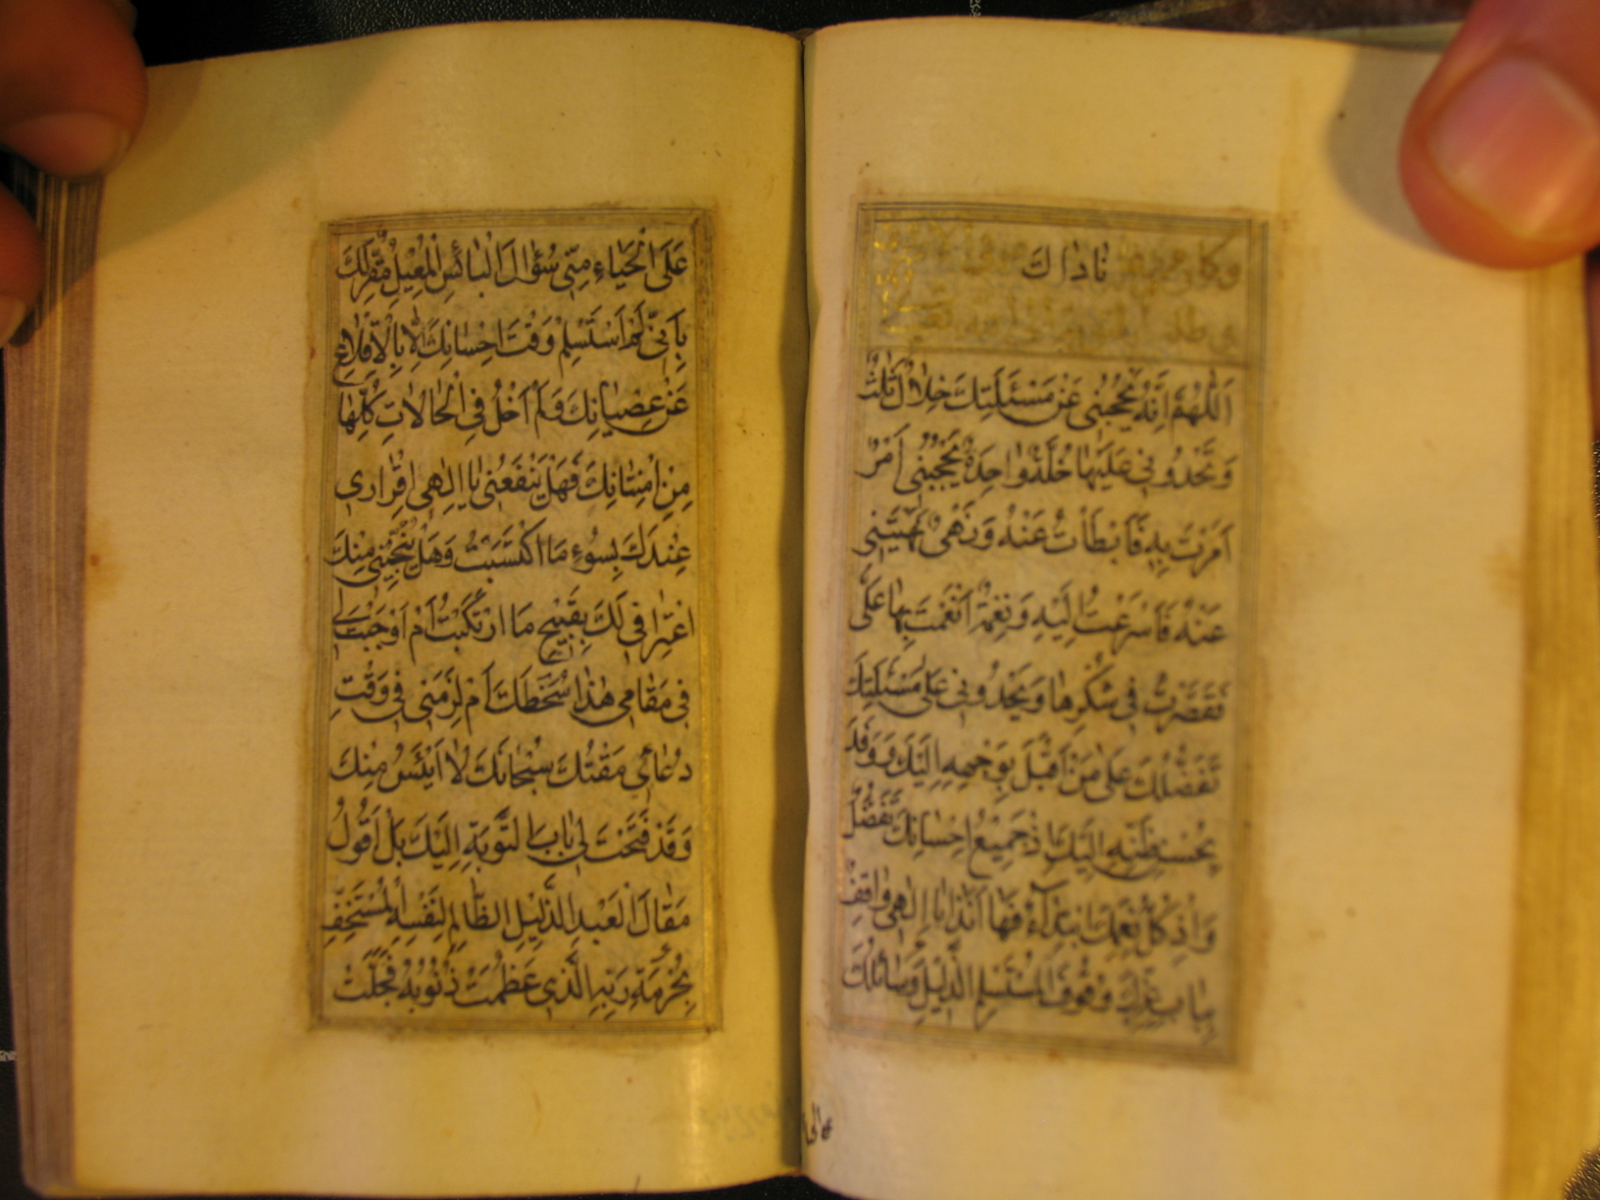 ناداك
وكان من
في طلب
اَللّٰهُمَّ اِنَّهُ يَحْجُبُنى عَنْ مَسْئَلَتِكَ خِلالٌ ثَلثٌ
وَتَحْدُونى عَلَيْها خُلَّةٌ واحِدَةٌ يَحْجُبُنى اَمْرٌ
اَمَرْتَ بِهِ فَاَبْطَأْتُ عَنْهُ وَنَهْىٌ نَهَيْتَنى
عَنْهُ فَاَسْرَعْتُ اِلَيْهِ وَنِعْمَةٌ اَنْعَمْتَ بِها عَلَىَّ
فَقَصَّرْتُ فى شُكْرِها وَيَحْدُونى عَلى مَسْئَلَتِكَ
تَفَضُّلُكَ عَلى مَنْ اَقْبَلَ بِوَجْهِهِ اِلَيْكَ وَوَفَدَ
بِحُسْنِ ظَنِّهِ اِلَيْكَ اِذْ جَميعُ اِحْسانِكَ تَفَضُّلٌ
وَاِذْ كُلُّ نِعَمِكَ ابْتِدآءٌ فَها اَنَذا يا اِلٰهى واقِفٌ
بِبابِ عِزِّكَ وُقُوفَ الْمُسْتَسْلِمِ الذَّليلِ وَسائِلُكَ
عَلَى الْحَياءِ مِنّى سُؤالَ الْبائِسِ الْمُعيلِ مُقِرٌّ لَكَ
بِاَنّى لَمْ اَسْتَسْلِمْ وَقْتَ اِحْسانِكَ اِلّا بِالْاِقْلاعِ
عَنْ عِصْيانِكَ وَلَمْ اَخْلُ فِى الْحالاتِ كُلِّها
مِنِ امْتِنانِكَ فَهَلْ يَنْفَعُنى يا اِلٰهى اِقْرارى
عِنْدَكَ بِسُوءِ مَا اكْتَسَبْتُ وَهَلْ يُنْجينى مِنْكَ
اعْتِرافى لَكَ بِقَبيحِ مَا ارْتَكَبْتُ اَمْ اَوْجَبْتَ لى
فى مَقامى هٰذا سُخْطَكَ اَمْ لَزِمَنى فى وَقْتِ
دُعائى مَقْتُكَ سُبْحانَكَ لا اَيْئَسُ مِنْكَ
وَقَدْ فَتَحْتَ لى بابَ التَّوْبَةِ اِلَيْكَ بَلْ اَقُولُ
مَقالَ الْعَبْدِ الذَّليلِ الظّالِمِ لِنَفْسِهِ الْمُسْتَخِفِّ
بِحُرْمَةِ رَبِّهِ الَّذى عَظُمَتْ ذُنُوبُهُ فَجَلَّتْ
على